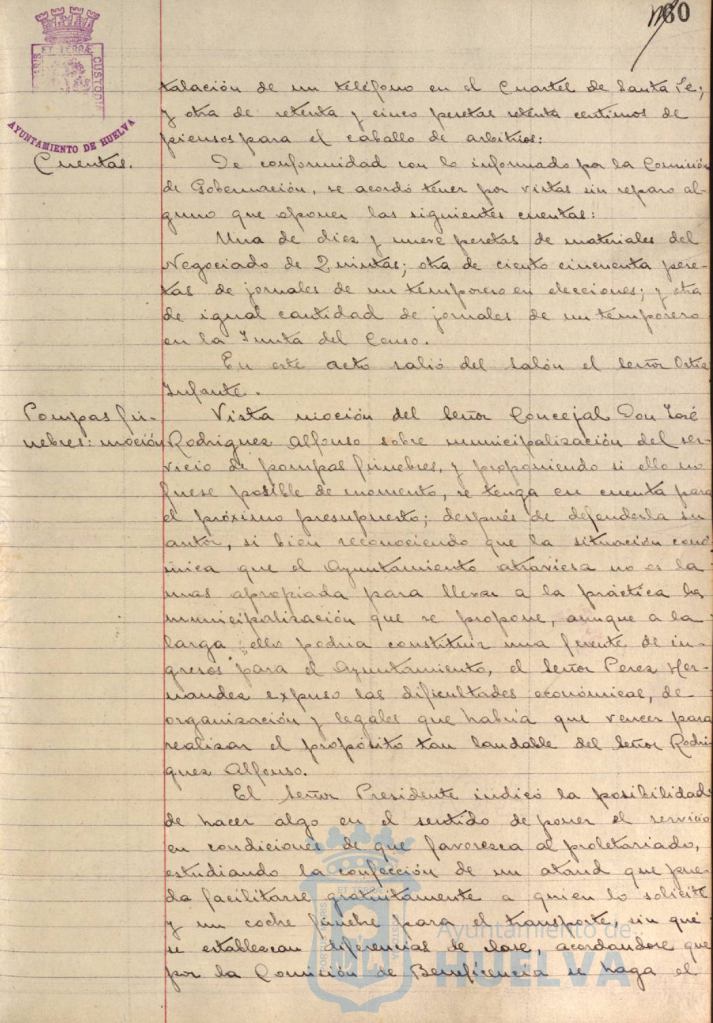 60
PORTUS MARIS ET TERRÆ CUSTODIA
AYUNTAMIENTO DE HUELVA
talación de un teléfono en el Cuartel de Santa Fe;
y otra de setenta y cinco pesetas setenta centimos de
piensos para el caballo de arbitrios:
Cuentas.
De conformidad con lo informado por la Comisión
de Gobernación, se acordó tener por vistas sin reparo al-
guno que oponer las siguientes cuentas:
Una de diez y nueve pesetas de materiales del
Negociado de Quintas; otra de ciento cincuenta pese-
tas de jornales de un temporero en elecciones; y otra
de igual cantidad de jornales de un temporero
en la Junta del Censo.
En este acto salió del salón el Señor Ortiz
Infante.
Pompas fú-
nebres: moción
Vista moción del Señor Concejal Don José
Rodriguez Alfonso sobre municipalización del ser-
vicio de pompas fúnebres, y proponiendo si ello no
fuese posible de momento, se tenga en cuenta para
el próximo presupuesto; después de defenderla su
autor, si bien reconociendo que la situación econó-
mica que el Ayuntamiento atraviesa no es la
mas apropiada para llevar a la práctica la
municipalización que se propone, aunque a la
larga ello podria constituir una fuente de in-
gresos para el Ayuntamiento, el Señor Perez Her-
nandez expuso las dificultades económicas, de
organización y legales que habría que vencer para
realizar el propósito tan laudable del Señor Rodri-
guez Alfonso.
El Señor Presidente indicó la posibilidad
de hacer algo en el sentido de poner el servicio
en condiciones de que favoresca al proletariado,
estudiando la confección de un ataud que pue-
da facilitarse gratuitamente a quien lo solicite
y un coche fúnebre para el transporte, sin que
se establescan diferencias de clase, acordandose que
por la Comisión de Beneficencia se haga el
Ayuntamiento de
HUELVA